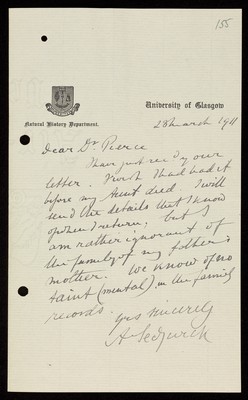 155
University of Glasgow
Natural History Department.
28 March 1911
Dear Dr Pierce
I have just recd your
letter. I wish I had had it
before my Aunt died. I will
send the details that I know
of when I return; but I
am rather ignorant of
the family of my father's
mother. We know of no
taint (mental) in the family
records.
yrs sincerely
A Sedgwick